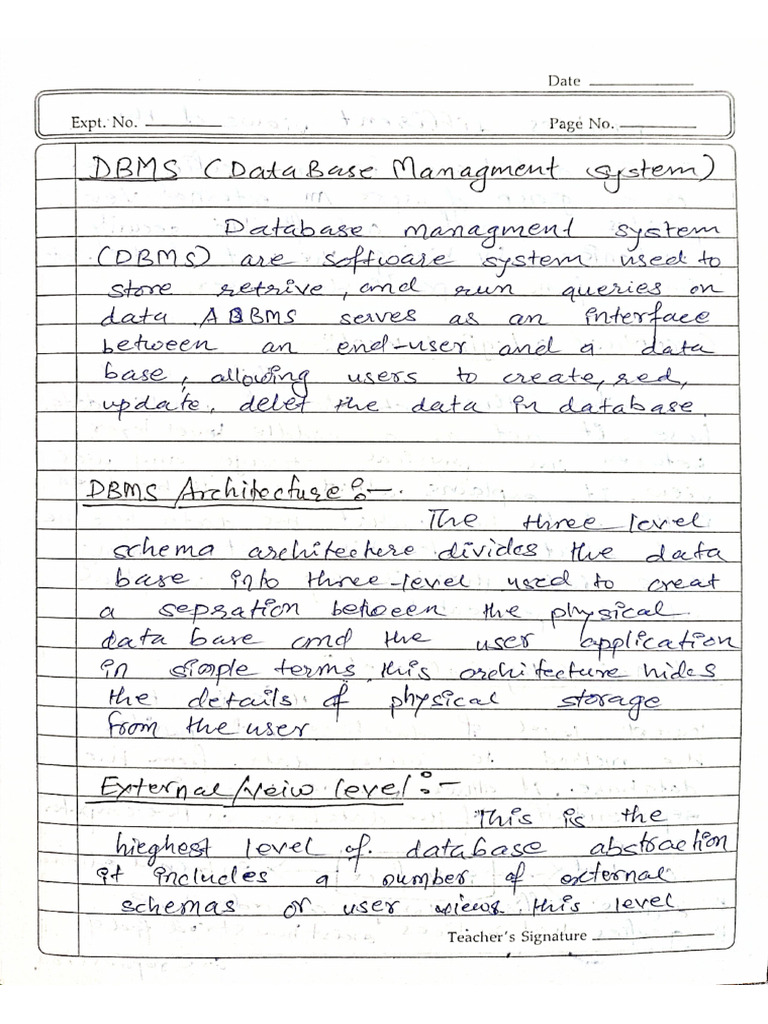 Date
Expt. No.
Page No.
DBMS (DataBase Managment system)
Database managment system
(DBMS) are software system used to
store retrive, and run queries on
data A DBMS serves as an interface
between an end-user and a data
base, allowing users to create, red,
update, delet the data in database.
DBMS Architecture :-
The three level
schema architechere divides the data
base into three-level used to creat
a sepration between the physical
data base and the user application
in simple terms, this architecture hides
the details of physical storage
from the user
External/Veiw level :-
This is the
hieghest level of database abstraction
it includes a number of external
schemas or user views this level
Teacher's Signature